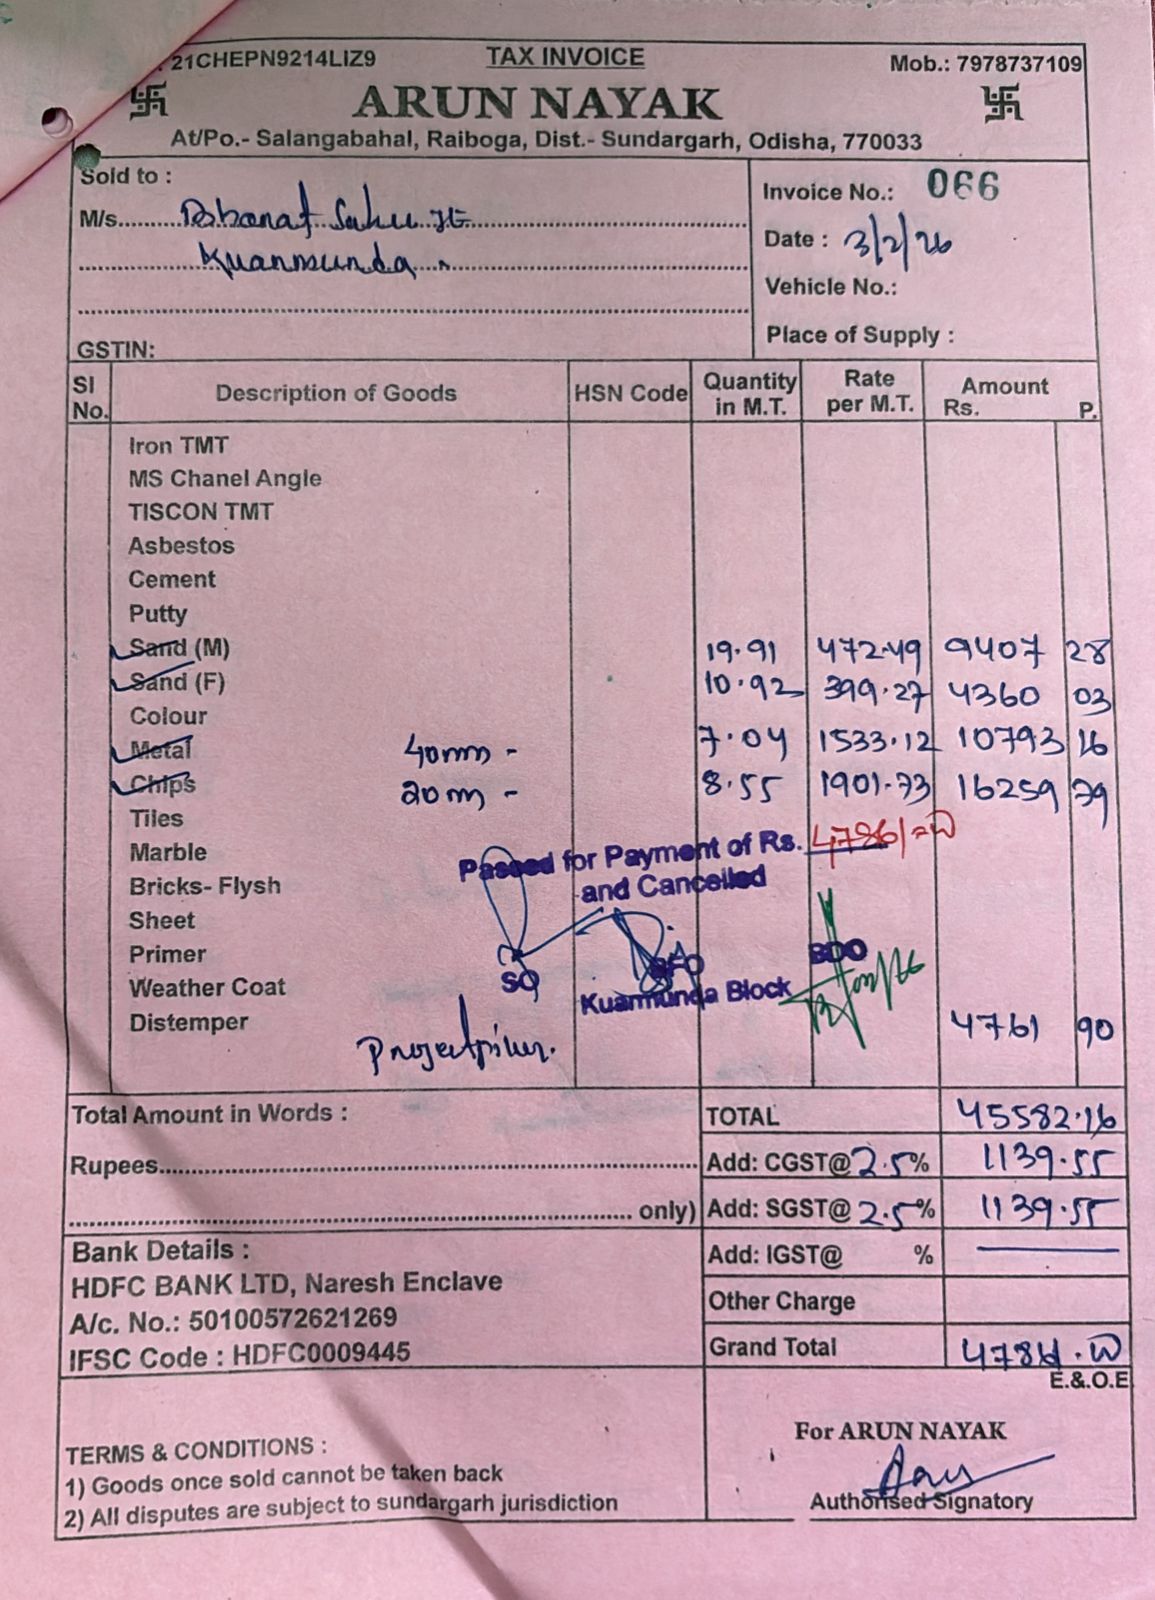 21CHEPN9214LIZ9 TAX INVOICE Mob.: 7978737109
ARUN NAYAK
At/Po.- Salangabahal, Raiboga, Dist.- Sundargarh, Odisha, 770033
Sold to :
M/s. Sahu
Kuanmunda
Invoice No.: 066
Date : 3/2/26
Vehicle No.:
Place of Supply :
GSTIN:
Sl No. Description of Goods HSN Code Quantity in M.T. Rate per M.T. Amount Rs. P.
Iron TMT
MS Chanel Angle
TISCON TMT
Asbestos
Cement
Putty
Sand (M) 19.91 472.49 9407 28
Sand (F) 10.92 399.27 4360 03
Colour
Metal 40mm - 7.04 1533.12 10793 16
Chips 20m - 8.55 1901.73 16259 79
Tiles
Marble
Bricks- Flysh
Sheet
Primer
Weather Coat
Distemper 4761 90
Passed for Payment of Rs. 47861/=
and Cancelled
SO BDO
Kuarmunda Block
Total Amount in Words :
Rupees
only)
TOTAL 45582.16
Add: CGST@ 2.5% 1139.55
Add: SGST@ 2.5% 1139.55
Add: IGST@ %
Other Charge
Grand Total
E.&.O.E
Bank Details :
HDFC BANK LTD, Naresh Enclave
A/c. No.: 50100572621269
IFSC Code : HDFC0009445
TERMS & CONDITIONS :
1) Goods once sold cannot be taken back
2) All disputes are subject to sundargarh jurisdiction
For ARUN NAYAK
Authorised Signatory